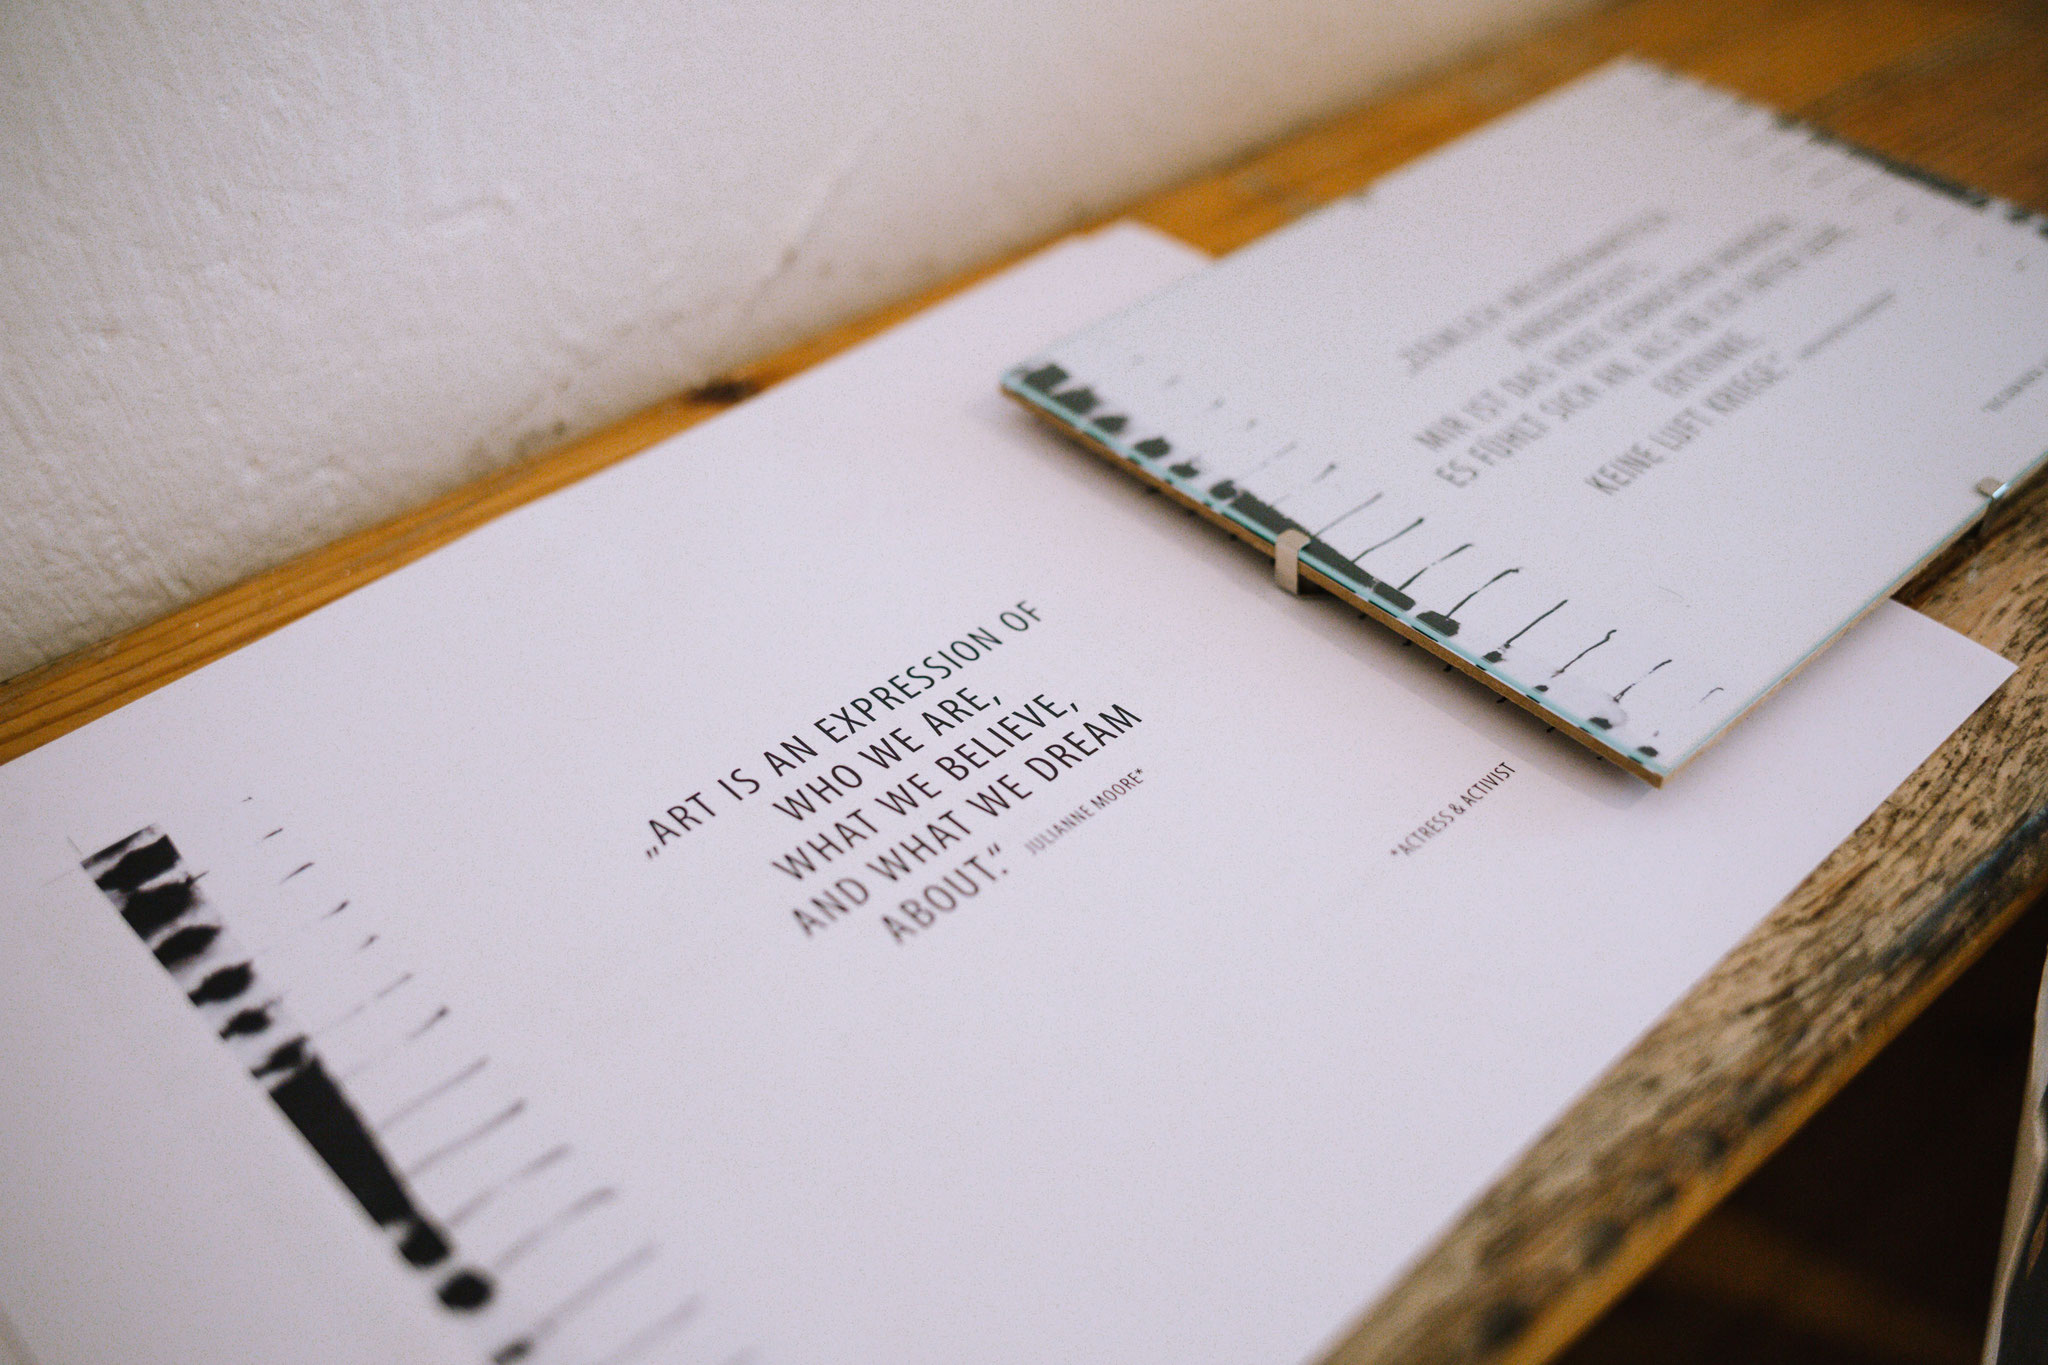 „ART IS AN EXPRESSION OF
WHO WE ARE,
WHAT WE BELIEVE,
AND WHAT WE DREAM
ABOUT.“ JULIANNE MOORE*
*ACTRESS & ACTIVIST
MIR IST DAS HERZ GEBROCHEN WORDEN.
ES FÜHLT SICH AN, ALS OB ICH UNTER
ERTRINKE
KEINE LUFT KRIEGE“